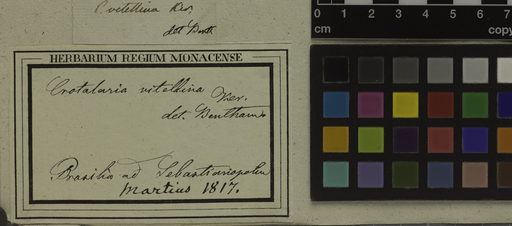 C. vitellina Ker.
det. Benth.
HERBARIUM REGIUM MONACENSE
Crotalaria vitellina Ker.
det. Bentham
Brasilia ad Sebastianopolin
Martius 1817.
0 1 2 3 4 5 6 7
cm copy